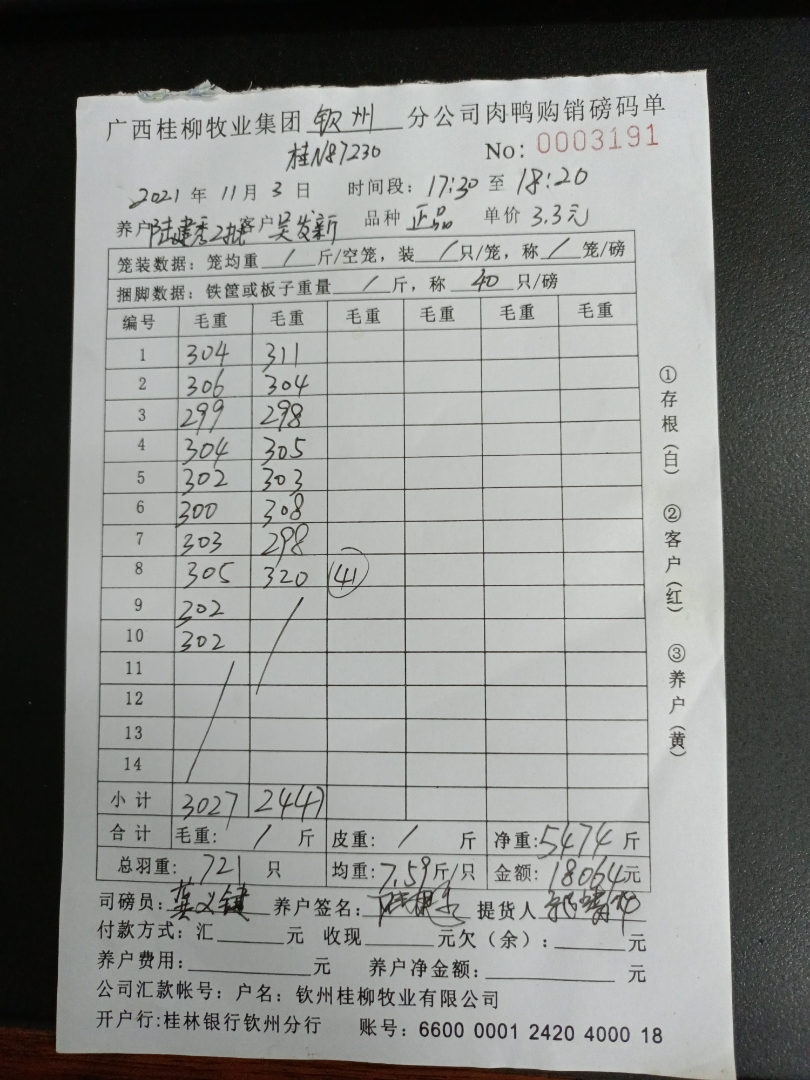 广西桂柳牧业集团 钦州 分公司肉鸭购销磅码单
桂N87230 No: 0003191
2021 年 11 月 3 日 时间段: 17:30 至 18:20
养户 陆建秀2批 客户 吴发新 品种 正品 单价 3.3元
笼装数据: 笼均重 / 斤/空笼, 装 / 只/笼, 称 / 笼/磅
捆脚数据: 铁筐或板子重量 / 斤, 称 40 只/磅
编号 毛重 毛重 毛重 毛重 毛重 毛重
1 304 311
2 306 304
3 299 298
4 304 305
5 302 303
6 300 308
7 303 298
8 305 320 (41)
9 302 /
10 302
11 /
12
13
14
小计 3027 2447
合计 毛重: / 斤 皮重: / 斤 净重: 5474 斤
总羽重: 721 只 均重: 7.59 斤/只 金额: 18064 元
司磅员: 龚义键 养户签名: 提货人
付款方式: 汇 元 收现 元欠(余): 元
养户费用: 元 养户净金额: 元
公司汇款帐号: 户名: 钦州桂柳牧业有限公司
开户行:桂林银行钦州分行 账号: 6600 0001 2420 4000 18
①存根(白) ②客户(红) ③养户(黄)